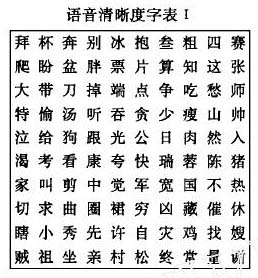 语音清晰度字表 I
拜 杯 奔 别 冰 抱 叁 粗 四 赛
爬 盼 盆 胖 票 片 算 知 这 张
大 带 刀 掉 端 点 争 吃 愁 师
特 偷 汤 听 吞 贪 少 瘦 山 帅
泣 给 狗 跟 光 公 日 肉 然 入
渴 考 看 康 夸 快 瑞 蓉 陈 猪
家 叫 剪 中 觉 军 宽 国 不 热
切 求 曲 圈 裙 穷 凶 藏 催 休
瞎 小 秀 先 许 自 灾 鸡 找 嫂
贼 祖 坐 亲 村 松 终 常 是 谢